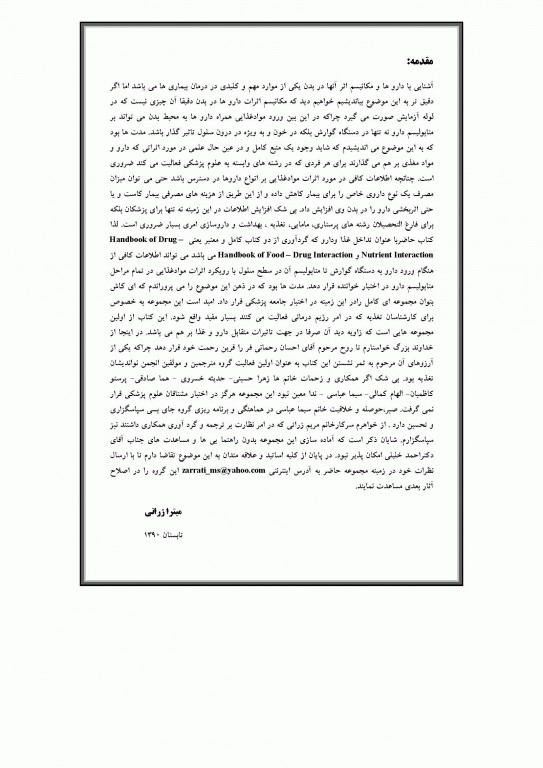 مقدمه:
آشنایی با دارو ها و مکانیسم اثر آنها در بدن یکی از موارد مهم و کلیدی در درمان بیماری ها می باشد اما اگر
دقیق تر به این موضوع بیاندیشیم خواهیم دید که مکانیسم اثرات دارو ها در بدن دقیقا آن چیزی نیست که در
لوله آزمایش صورت می گیرد چراکه در این بین ورود موادغذایی همراه دارو ها به محیط بدن می تواند بر
متابولیسم دارو نه تنها در دستگاه گوارش بلکه در خون و به ویژه در درون سلول تاثیر گذار باشد. مدت ها بود
که به این موضوع می اندیشیدم که شاید وجود یک منبع کامل و در عین حال علمی در مورد اثراتی که دارو و
مواد مغذی بر هم می گذارند برای هر فردی که در رشته های وابسته به علوم پزشکی فعالیت می کند ضروری
است. چنانچه اطلاعات کافی در مورد اثرات موادغذایی بر انواع داروها در دسترس باشد حتی می توان میزان
مصرف یک نوع داروی خاص را برای بیمار کاهش داده و از این طریق از هزینه های مصرفی بیمار کاست و یا
حتی اثربخشی دارو را در بدن وی افزایش داد. بی شک افزایش اطلاعات در این زمینه نه تنها برای پزشکان بلکه
برای فارغ التحصیلان رشته های پرستاری، مامایی، تغذیه ، بهداشت و داروسازی امری بسیار ضروری است. لذا
کتاب حاضربا عنوان تداخل غذا ودارو که گردآوری از دو کتاب کامل و معتبر یعنی Handbook of Drug –
Nutrient Interaction و Handbook of Food – Drug Interaction می باشد می تواند اطلاعات کافی از
هنگام ورود دارو به دستگاه گوارش تا متابولیسم آن در سطح سلول با رویکرد اثرات موادغذایی در تمام مراحل
متابولیسم دارو در اختیار خواننده قرار دهد. مدت ها بود که در ذهن این موضوع را می پروراندم که ای کاش
بتوان مجموعه ای کامل رادر این زمینه در اختیار جامعه پزشکی قرار داد. امید است این مجموعه به خصوص
برای کارشناسان تغذیه که در امر رژیم درمانی فعالیت می کنند بسیار مفید واقع شود. این کتاب از اولین
مجموعه هایی است که زاویه دید آن صرفا در جهت تاثیرات متقابل دارو و غذا بر هم می باشد. در اینجا از
خداوند بزرگ خواستارم تا روح مرحوم آقای احسان رحمانی فر را قرین رحمت خود قرار دهد چراکه یکی از
آرزوهای آن مرحوم به ثمر نشستن این کتاب به عنوان اولین فعالیت گروه مترجمین و مولفین انجمن نواندیشان
تغذیه بود. بی شک اگر همکاری و زحمات خانم ها زهرا حسینی– حدیثه خسروی – هما صادقی– پرستو
کاظمیان– الهام کمالی– سیما عباسی – ندا معین نبود این مجموعه هرگز در اختیار مشتاقان علوم پزشکی قرار
نمی گرفت. صبر،حوصله و خلاقیت خانم سیما عباسی در هماهنگی و برنامه ریزی گروه جای بسی سپاسگزاری
و تحسین دارد . از خواهرم سرکارخانم مریم زراتی که در امر نظارت بر ترجمه و گرد آوری همکاری داشتند نیز
سپاسگزارم. شایان ذکر است که آماده سازی این مجموعه بدون راهنما یی ها و مساعدت های جناب آقای
دکتراحمد خلیلی امکان پذیر نبود. در پایان از کلیه اساتید و علاقه مندان به این موضوع تقاضا دارم تا با ارسال
نظرات خود در زمینه مجموعه حاضر به آدرس اینترنتی zarrati_ms@yahoo.com این گروه را در اصلاح
آثار بعدی مساعدت نمایند.
میترا زراتی
تابستان ۱۳۹۰